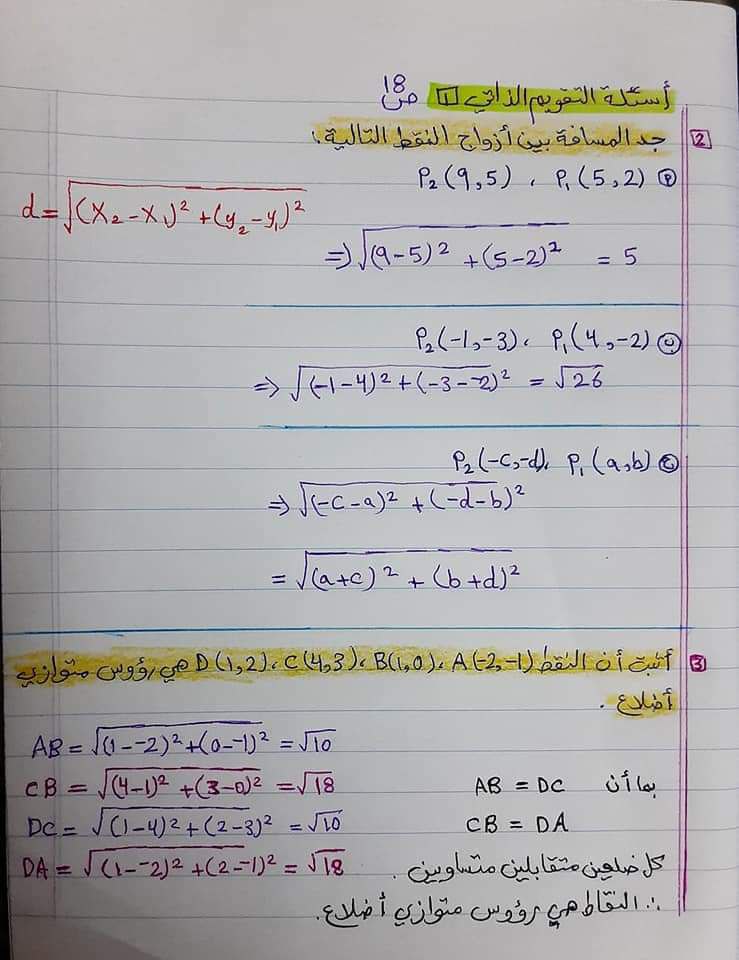 أسئلة التقويم الذاتي 1 ص 18
2 جد المسافة بين أزواج النقط التالية :
أ P₁(5,2) ، P₂(9,5)
d = √(x₂-x₁)² + (y₂-y₁)²
⇒ √(9-5)² + (5-2)² = 5
ب P₁(4,-2) ، P₂(-1,-3)
⇒ √(-1-4)² + (-3--2)² = √26
ج P₁(a,b) ، P₂(-c,-d)
⇒ √(-c-a)² + (-d-b)²
= √(a+c)² + (b+d)²
3 أثبت أن النقط A(-2,-1) ، B(1,0) ، C(4,3) ، D(1,2) هي رؤوس متوازي
أضلاع .
AB = √(1--2)² + (0--1)² = √10
CB = √(4-1)² + (3-0)² = √18
بما أن AB = DC
DC = √(1-4)² + (2-3)² = √10
CB = DA
DA = √(1--2)² + (2--1)² = √18
كل ضلعين متقابلين متساويين .
∴ النقاط هي رؤوس متوازي أضلاع.